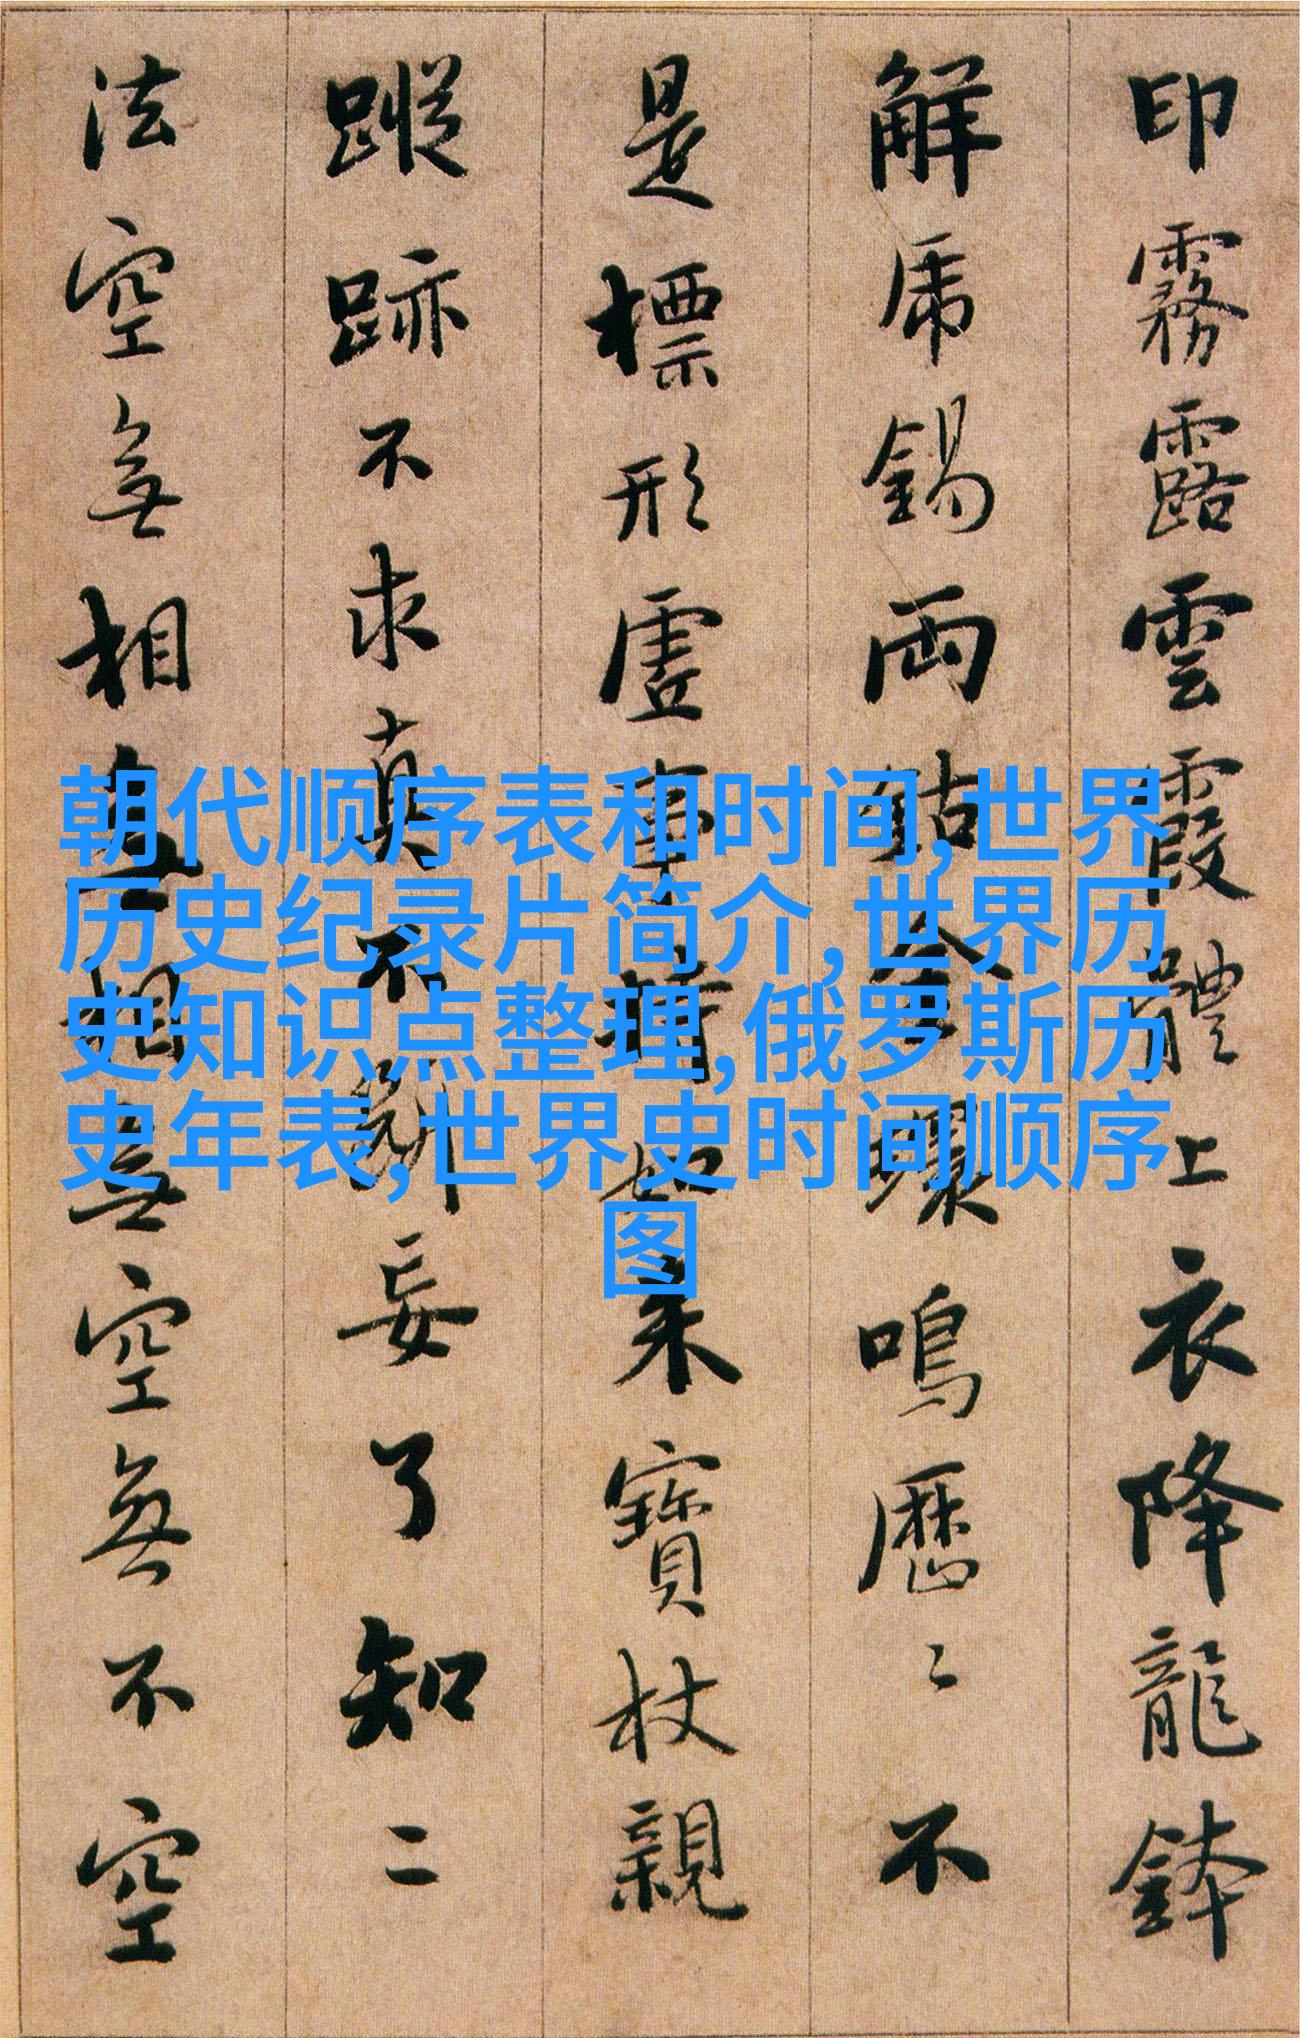 印霧露雲霞體上衣降龍鉢
解虎錫兩鈷金環鳴歷〻不
是標形虛事持如來寶杖親
蹤跡不求真不斷妄了知二
法空無相無相無空無不空
朝代顺序表和时间,世界
历史纪录片简介,世界历
史知识点整理,俄罗斯历
史年表,世界史时间顺序
图